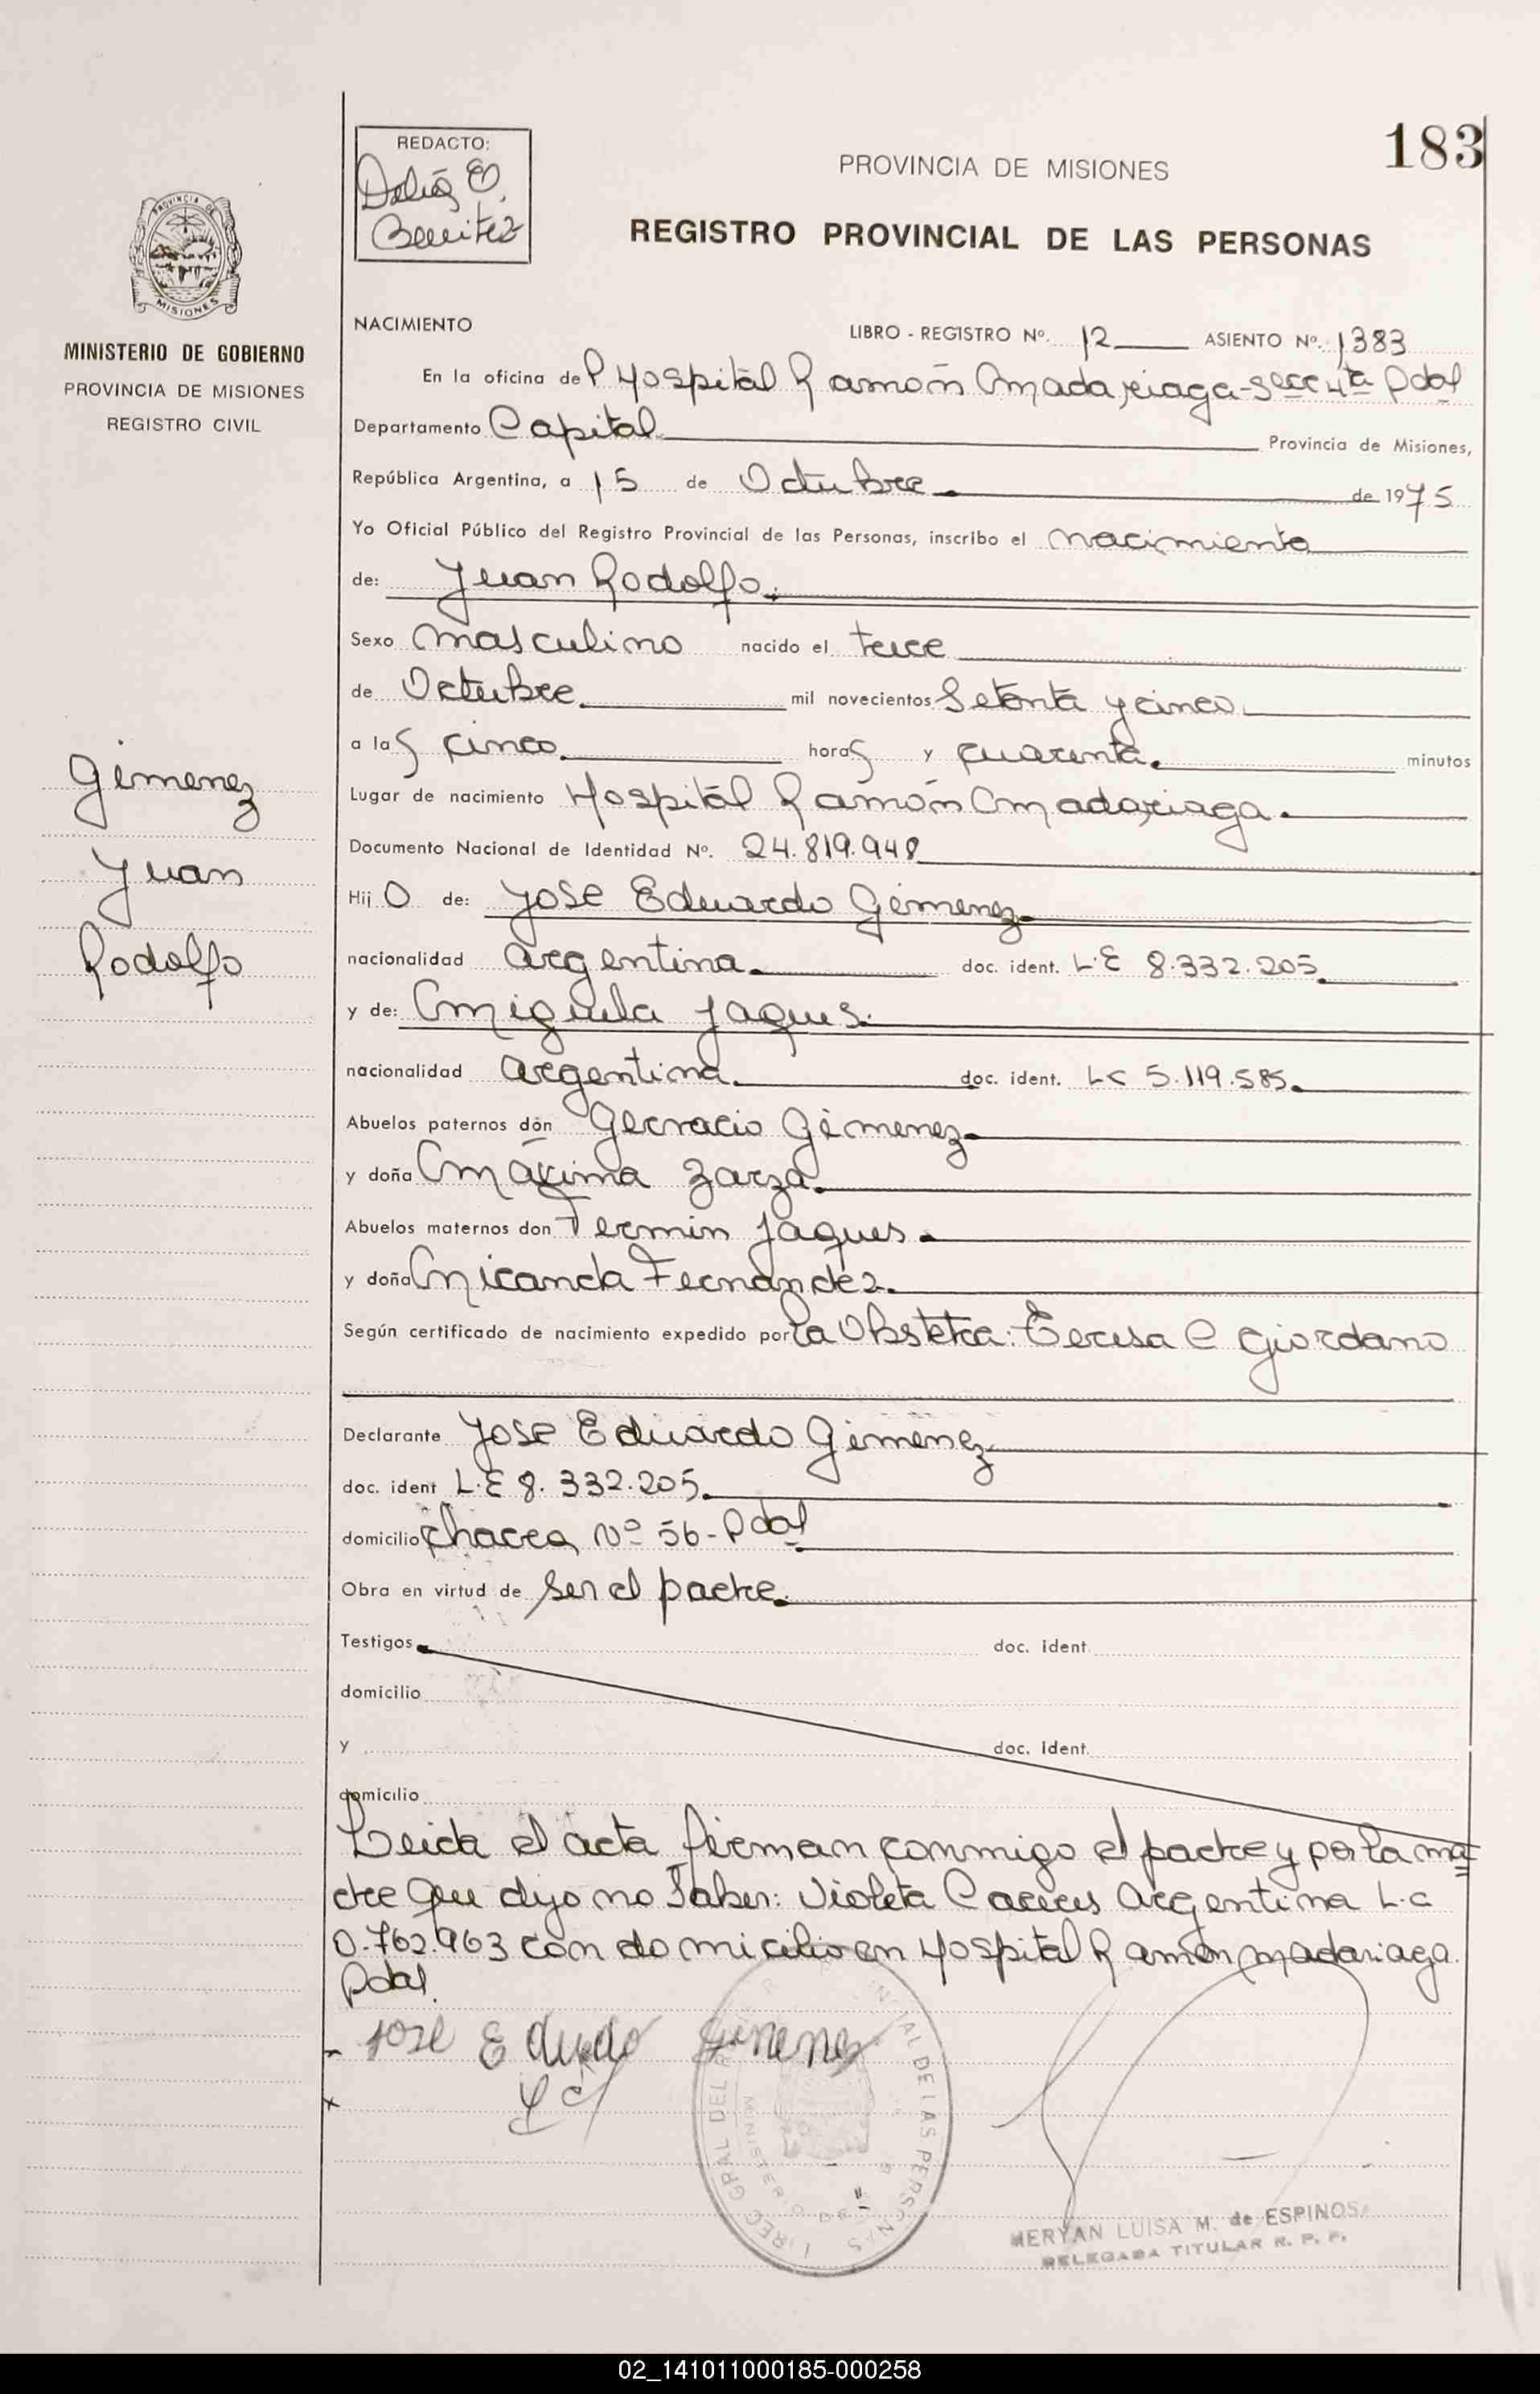 183
REDACTO:
Delia E.
Benitez
PROVINCIA DE MISIONES
REGISTRO PROVINCIAL DE LAS PERSONAS
PROVINCIA DE
MISIONES
MINISTERIO DE GOBIERNO
PROVINCIA DE MISIONES
REGISTRO CIVIL
NACIMIENTO
LIBRO - REGISTRO Nº. 12 ASIENTO Nº. 1383
En la oficina del Hospital Ramón Madariaga - Secc 4ta Pdas
Departamento Capital Provincia de Misiones,
República Argentina, a 15 de Octubre de 1975
Yo Oficial Público del Registro Provincial de las Personas, inscribo el nacimiento
de: Juan Rodolfo.
Sexo masculino nacido el trece
de Octubre. mil novecientos Setenta y cinco.
a las cinco. horas y cuarenta. minutos
Gimenez
Juan
Rodolfo
Lugar de nacimiento Hospital Ramón Madariaga.
Documento Nacional de Identidad Nº. 24.819.948
Hijo de: José Eduardo Gimenez
nacionalidad argentina. doc. ident. L.E 8.332.205.
y de: Miguela Jaques.
nacionalidad argentina. doc. ident. LC 5.119.585.
Abuelos paternos don Gervacio Gimenez
y doña Máxima Zarza.
Abuelos maternos don Fermin Jaques.
y doña Miranda Fernández.
Según certificado de nacimiento expedido por la Obstetra: Teresa C Giordano
Declarante José Eduardo Gimenez
doc. ident L.E 8.332.205.
domicilio chacra Nº 56 - Pdas
Obra en virtud de ser el padre.
Testigos doc. ident.
domicilio
y doc. ident.
domicilio
Leida el acta firman conmigo el padre y por la ma
dre que dijo no Saber: Violeta Caceres Argentina L.C
0.762.963 con domicilio en Hospital Ramón Madariaga.
Pdas.
José Eduado Gimenez
MERYAN LUISA M. de ESPINOSA
DELEGADA TITULAR R. P. P.
02_141011000185-000258